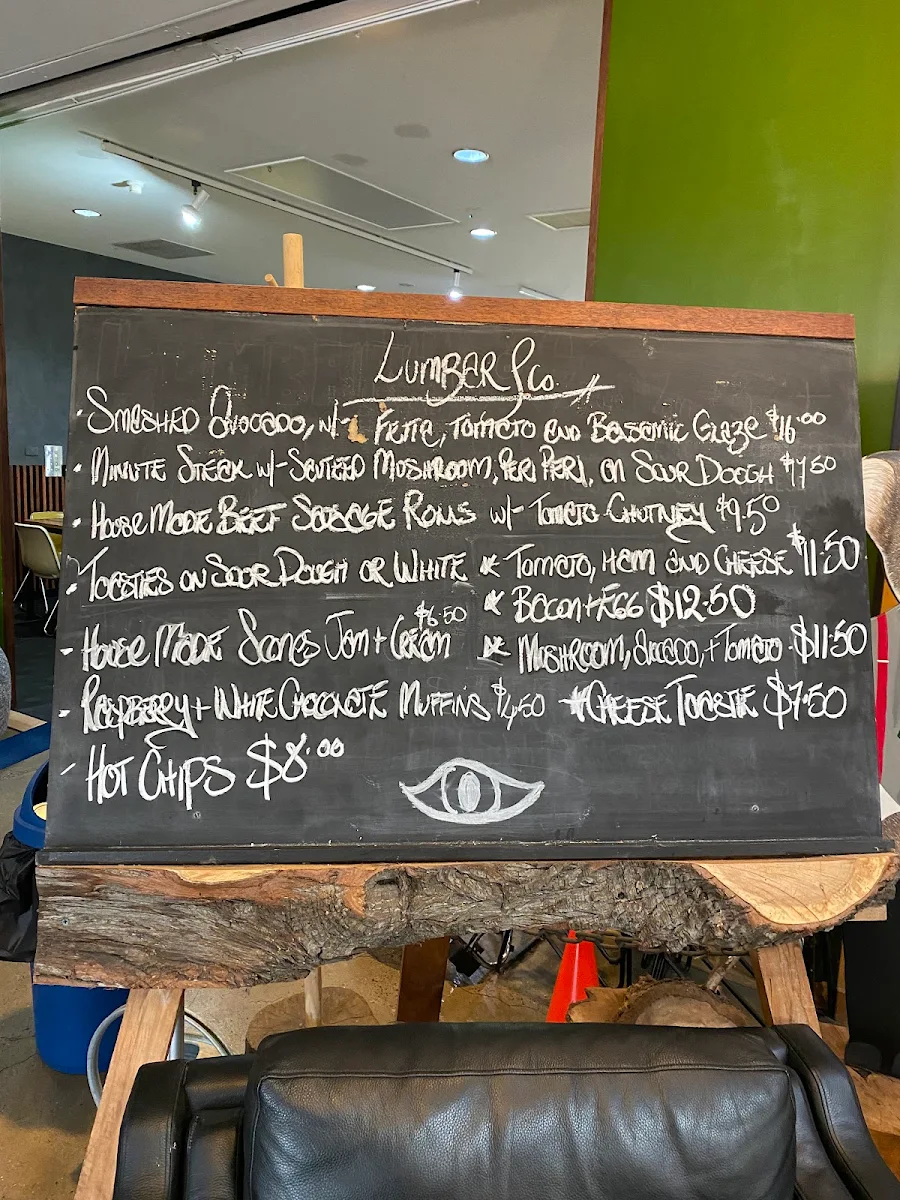 LUMBER & Co.
· SMASHED AVOCADO, w/- FETTE, TOMATO AND BALSAMIC GLAZE $16.00
· MINUTE STEAK w/- SAUTEED MUSHROOM, PERI PERI, ON SOUR DOUGH $17.50
· HOUSE MADE BEEF SAUSAGE ROLLS w/- TOMATO CHUTNEY $9.50
· TOASTIES ON SOUR DOUGH OR WHITE * TOMATO, HAM AND CHEESE $11.50
* BACON + EGG $12.50
- HOUSE MADE SCONES JAM + CREAM $6.50 * MUSHROOM, AVOCADO, + TOMATO $11.50
- RASPBERRY + WHITE CHOCOLATE MUFFINS $4.50 * CHEESE TOASTIE $7.50
- HOT CHIPS $8.00